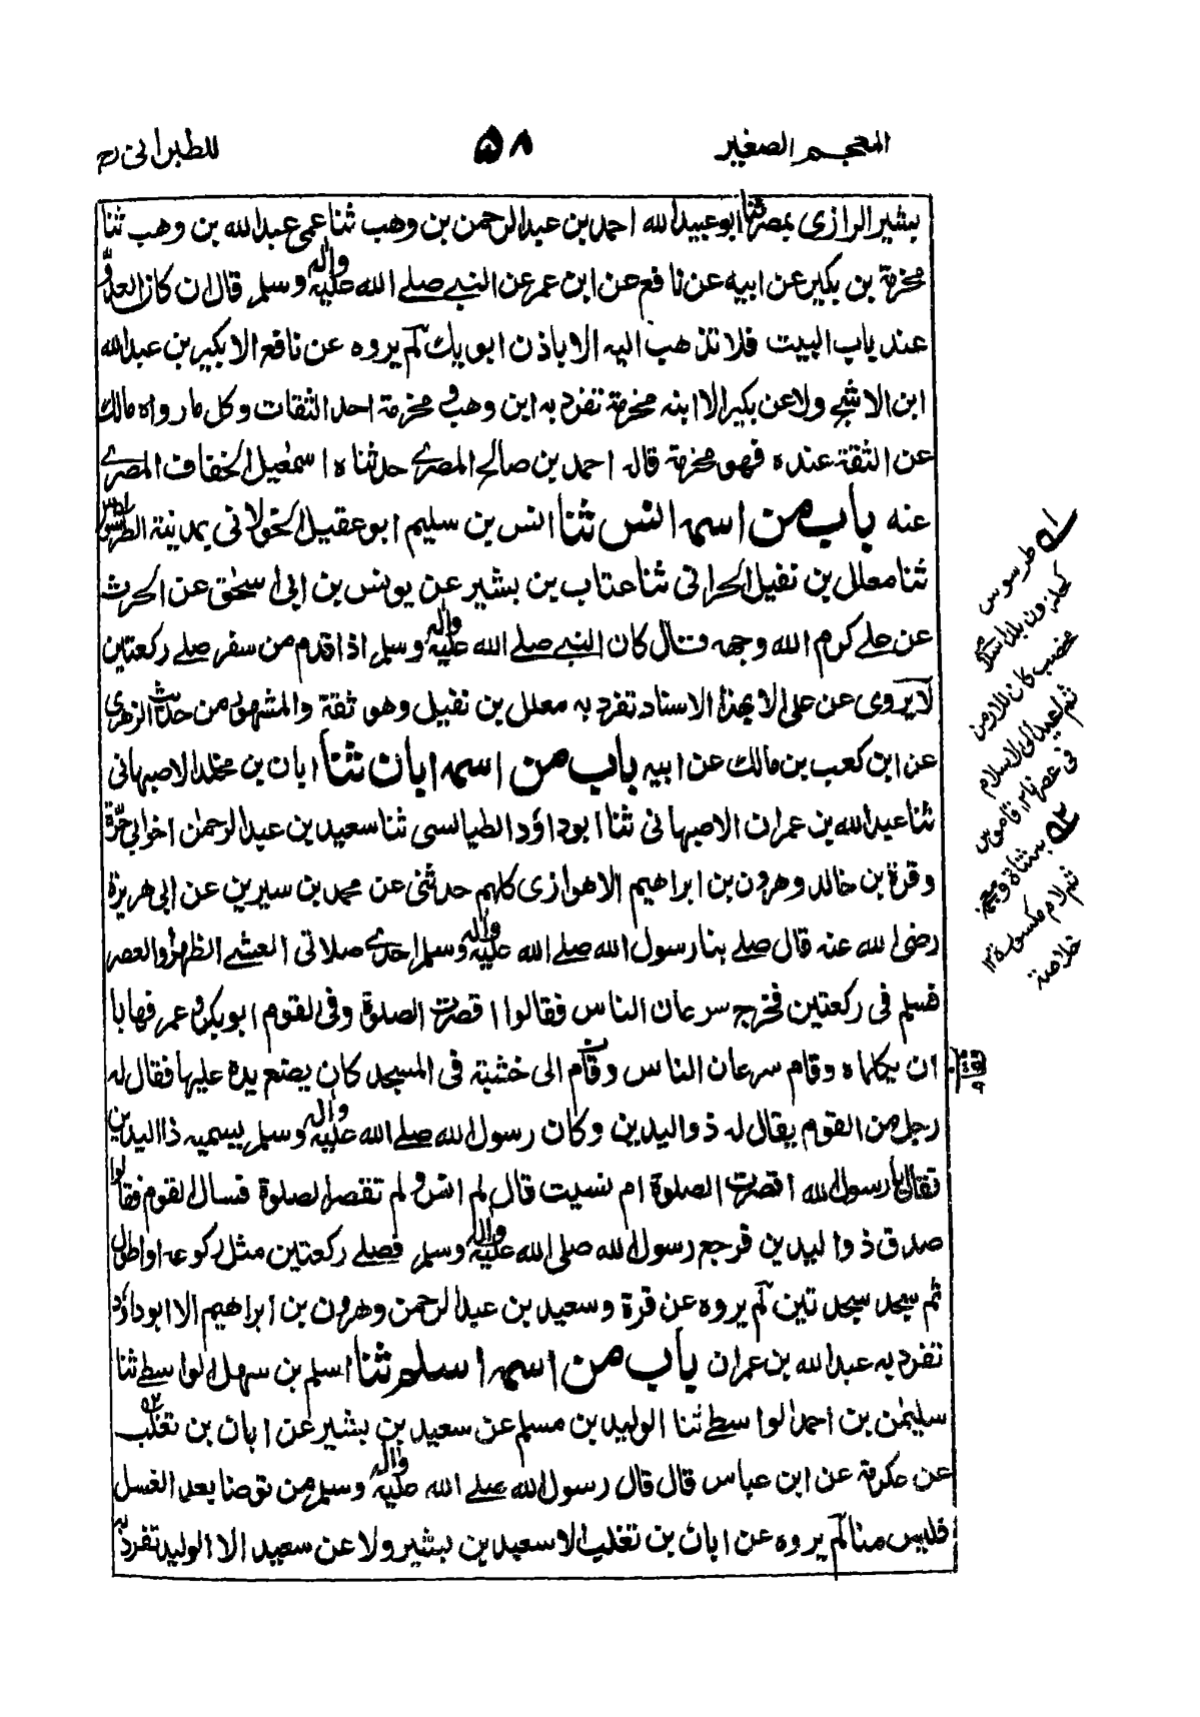 المعجم الصغير
۵۸
للطبرانی رح
بشير الرازی بمصر ثنا ابو عبيد الله احمد بن عبد الرحمن بن وهب ثنا عمی عبد الله بن وهب ثنا
مخرمة بن بكير عن ابيه عن نافع عن ابن عمر عن النبی صلے الله عليه واله وسلم قال ان كان العدو
عند باب البيت فلا تذهب اليه الا باذن ابويك لم يروه عن نافع الا بكير بن عبد الله
ابن الاشج ولا عن بكير الا ابنه مخرمة تفرد به ابن وهب و مخرمة احد الثقات وكل ما رواه مالك
عن الثقة عنده فهو مخرمة قاله احمد بن صالح المصرے حدثناه اسمعيل الخفاف المصرے
عنه باب من اسمه انس ثنا انس بن سليم ابو عقيل الخولانی بمدينة الطرسوس
ثنا معلل بن نفيل الحرانی ثنا عتاب بن بشير عن يونس بن ابی اسحٰق عن الحرث
عن علے كرم الله وجهه قال كان النبے صلے الله عليه واله وسلم اذا قدم من سفر صلے ركعتين
لا يروی عن علی الا بهذا الاسناد تفرد به معلل بن نفيل وهو ثقة والمشهور من حديث الزهری
عن ابن كعب بن مالك عن ابيه باب من اسمه ابان ثنا ابان بن مخلد الاصبهانی
ثنا عبد الله بن عمران الاصبهانی ثنا ابو داؤد الطيالسی ثنا سعيد بن عبد الرحمٰن اخو ابی حرة
وقرة بن خالد وهرون بن ابراهيم الاهوازی كلهم حدثنی عن محمد بن سيرين عن ابی هريرة
رضی الله عنه قال صلے بنا رسول الله صلے الله عليه واله وسلم احدے صلاتی العشے الظهر او العصر
فسلم فی ركعتين فخرج سرعان الناس فقالوا اقصرت الصلوة وفی القوم ابو بكر و عمر فهابا
ان يكلماه وقام سرعان الناس وقام الی خشبة فی المسجد كان يضع يده عليها فقال له
رجل من القوم يقال له ذو اليدين وكان رسول الله صلے الله عليه واله وسلم يسميه ذا اليدين
فقال يا رسول الله اقصرت الصلوة ام نسيت قال لم انس و لم تقصر الصلوة فسال القوم فقالوا
صدق ذو اليدين فرجع رسول الله صلی الله عليه واله وسلم فصلے ركعتين مثل ركوعه او اطول
ثم سجد سجدتين لم يروه عن قرة وسعيد بن عبد الرحمن وهرون بن ابراهيم الا ابو داؤد
تفرد به عبد الله بن عمران باب من اسمه اسلم ثنا اسلم بن سهل الواسطے ثنا
سليمٰن بن احمد الواسطے ثنا الوليد بن مسلم عن سعيد بن بشير عن ابان بن تغلب
عن عكرمة عن ابن عباس قال قال رسول الله صلے الله عليه واله وسلم من توضا بعد الغسل
فليس منا لم يروه عن ابان بن تغلب الا سعيد بن بشير ولا عن سعيد الا الوليد تفرد به
طرسوس
كحلزون بلد اسلامی
مخصب كان للارمن
ثم اعيد الی الاسلام
فی عصرنا ١٢ قاموس
بمثناة ومعجمة
ثم لام مكسورة ١٢
خلاصة